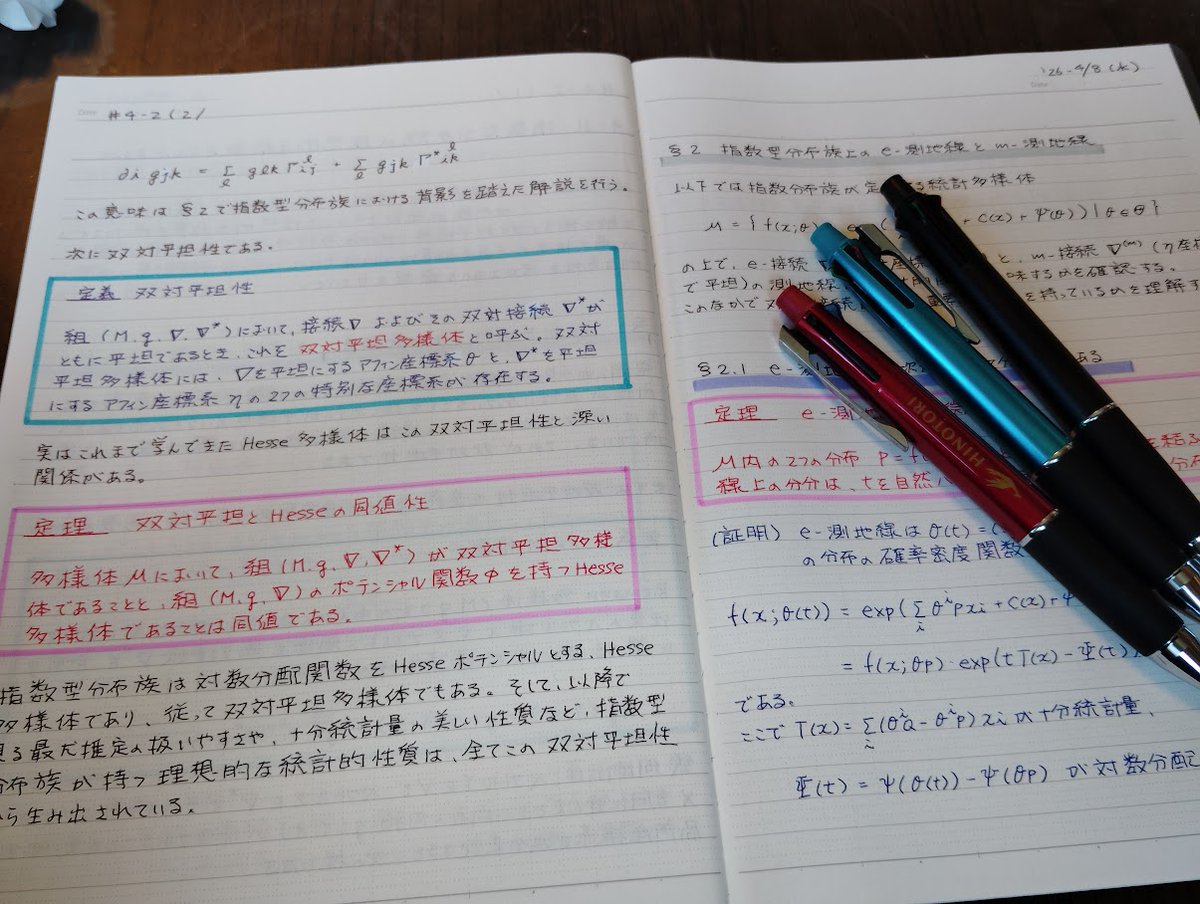 Date
#4-2(2/
∂i gjk = Σ_l glk Γ^l_ij + Σ_l gjk Γ*^l_ik
この意味は§2で指数型分布族における背景を踏まえた解説を行う。
次に双対平坦性である。
定義 双対平坦性
組(M.g.∇.∇*)において、接続∇およびその双対接続∇*が
ともに平坦であるとき、これを双対平坦多様体と呼ぶ。双対
平坦多様体には、∇を平坦にするアフィン座標系θと、∇*を平坦
にするアフィン座標系ηの2つの特別な座標系が存在する。
実はこれまで学んできたHesse多様体はこの双対平坦性と深い
関係がある。
定理 双対平坦とHesseの同値性
多様体Mにおいて、組(M.g.∇.∇*)が双対平坦多様
体であることと、組(M.g.∇)のポテンシャル関数φを持つHesse
多様体であることは同値である。
指数型分布族は対数分配関数をHesseポテンシャルとする、Hesse
多様体であり、従って双対平坦多様体でもある。そして、以降で
見る最尤推定の扱いやすさや、十分統計量の美しい性質など、指数型
分布族が持つ理想的な統計的性質は、全てこの双対平坦性
から生み出されている。
'26-4/8(水)
Date
§2 指数型分布族上のe-測地線とm-測地線
以下では指数分布族が定 る統計多様体
M = {f(x;θ) + C(x) + Ψ(θ)) | θ∈Θ}
の上で、e-接続 座標 と、m-接続∇(m)(η座標
で平坦)の測地線 味するかを確認する。
このなかで を持っているかを理解す
§2.1 e-測地 ある
定理 e-測地
M内の2つの分布 P=f( を結ぶ
線上の分分は、tを自然 分布
(証明) e-測地線はθ(t)=(
の分布の確率密度関数
f(x;θ(t)) = exp(Σ_i θ^i_P xi + C(x) + Ψ
= f(x;θP)・exp(tT(x) - Ψ(t))
である。
ここでT(x)=Σ_i(θ^i_Q - θ^i_P)xiが十分統計量、
Ψ(t) = Ψ(θ(t)) - Ψ(θP) が対数分配
HINOTORI